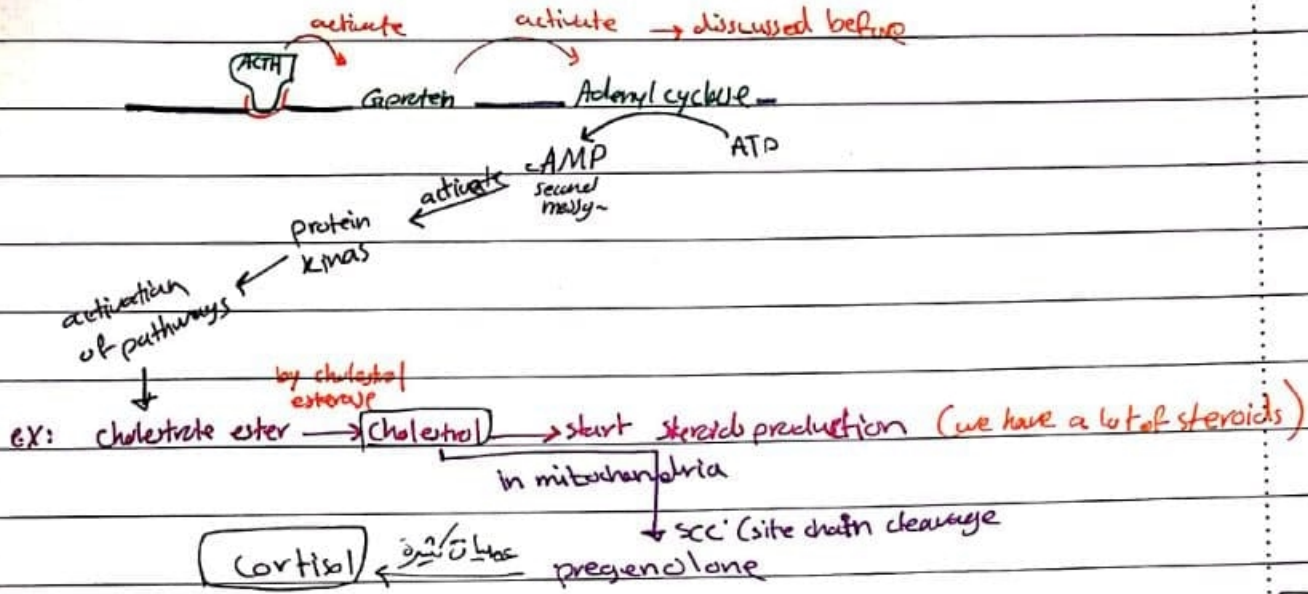 activate activate → discussed before
ACTH
Gprotein Adenyl cyclase
ATP
cAMP
activate second
protein
kinas
activation
of pathways
by cholestrol
esterase
ex: cholestrate ester → cholestrol → start steroids production (we have a lot of steroids)
in mitochondria
SCC (site chain cleavage
cortisol ← عمليات كثيرة pregenolone